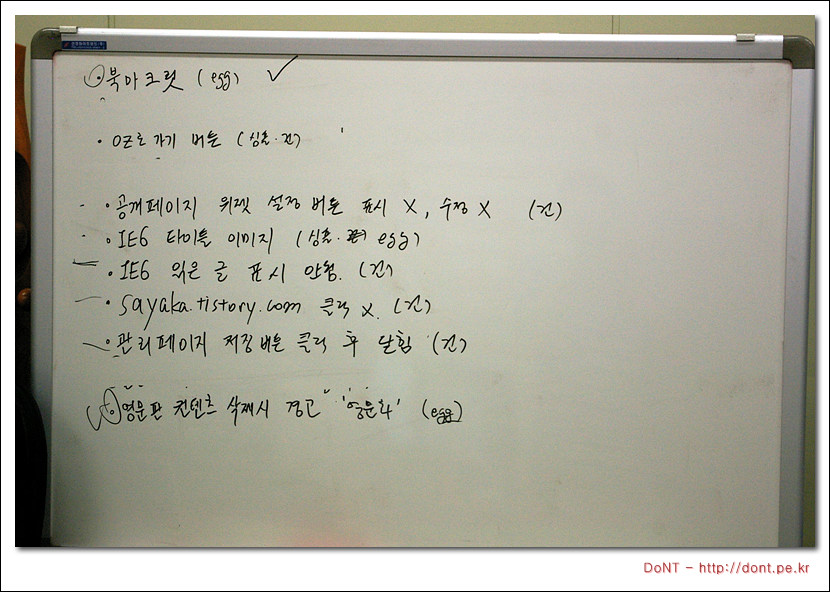 • 북마크릿 (egg) ✓
• OZ로 가기 버튼 (심플·건)
• 공개페이지 위젯 설정 버튼 표시 X, 수정 X (건)
• IE6 타이틀 이미지 (심플· egg)
• IE6 읽은 글 표시 안됨. (건)
• sayaka.tistory.com 클릭 X. (건)
• 관리페이지 저장버튼 클릭 후 닫힘 (건)
• 영문판 컨텐츠 삭제시 경고 '영문화' (egg)
DoNT - http://dont.pe.kr